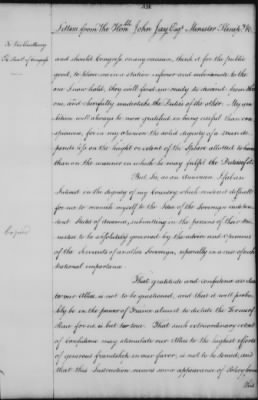 334
Letters from The Honble John Jay Esqr Minister Plenipo &c
To His Excellency
The Presidt of Congress
and should Congress, on any occasion, think it for the public
good, to place me in a station inferior and subordinate to the
one I now hold, they will find me ready to descend from the
one, and cheerfully undertake the Duties of the other. My am
bition will always be more gratified in being useful than con
spicuous, for in my opinion the solid dignity of a man de
pends less on the height or extent of the Sphere allotted to him
than on the manner in which he may fulfil the Duties of it.
But Sir, as an American I feel an
Interest in the dignity of my Country, which renders it difficult
for me to reconcile myself to the Idea of the Sovereign indepen
dent States of America, submitting in the persons of their Mi
nisters to be absolutely governed by the advice and opinions
of the Servants of another Sovereign, especially in a case of such
national importance.
That gratitude and confidence are due
to our Allies is not to be questioned, and that it will proba
bly be in the power of France almost to dictate the Terms of
Peace for us is but too true. That such extraordinary extent
of confidence may stimulate our Allies to the highest efforts
of generous friendship in our favor, is not to be denied, and
that this Instruction receives some appearance of Policy from
this